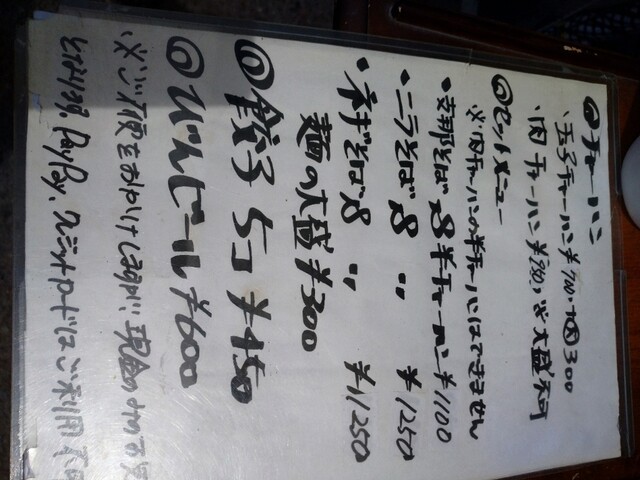 ◎チャーハン
・玉子チャーハン¥700・大300
・肉チャーハン¥950 ※大盛不可
◎セットメニュー
※肉チャーハンの半チャーハンはできません
・支那そば&半チャーハン¥1100
・ニラそば& 〃 ¥1250
・ネギそば& 〃 ¥1250
麺の大盛¥300
◎餃子5コ¥450
◎びんビール¥600
※ご不便をおかけしますが、現金のみのお
となります。PayPay、クレジットカードはご利用